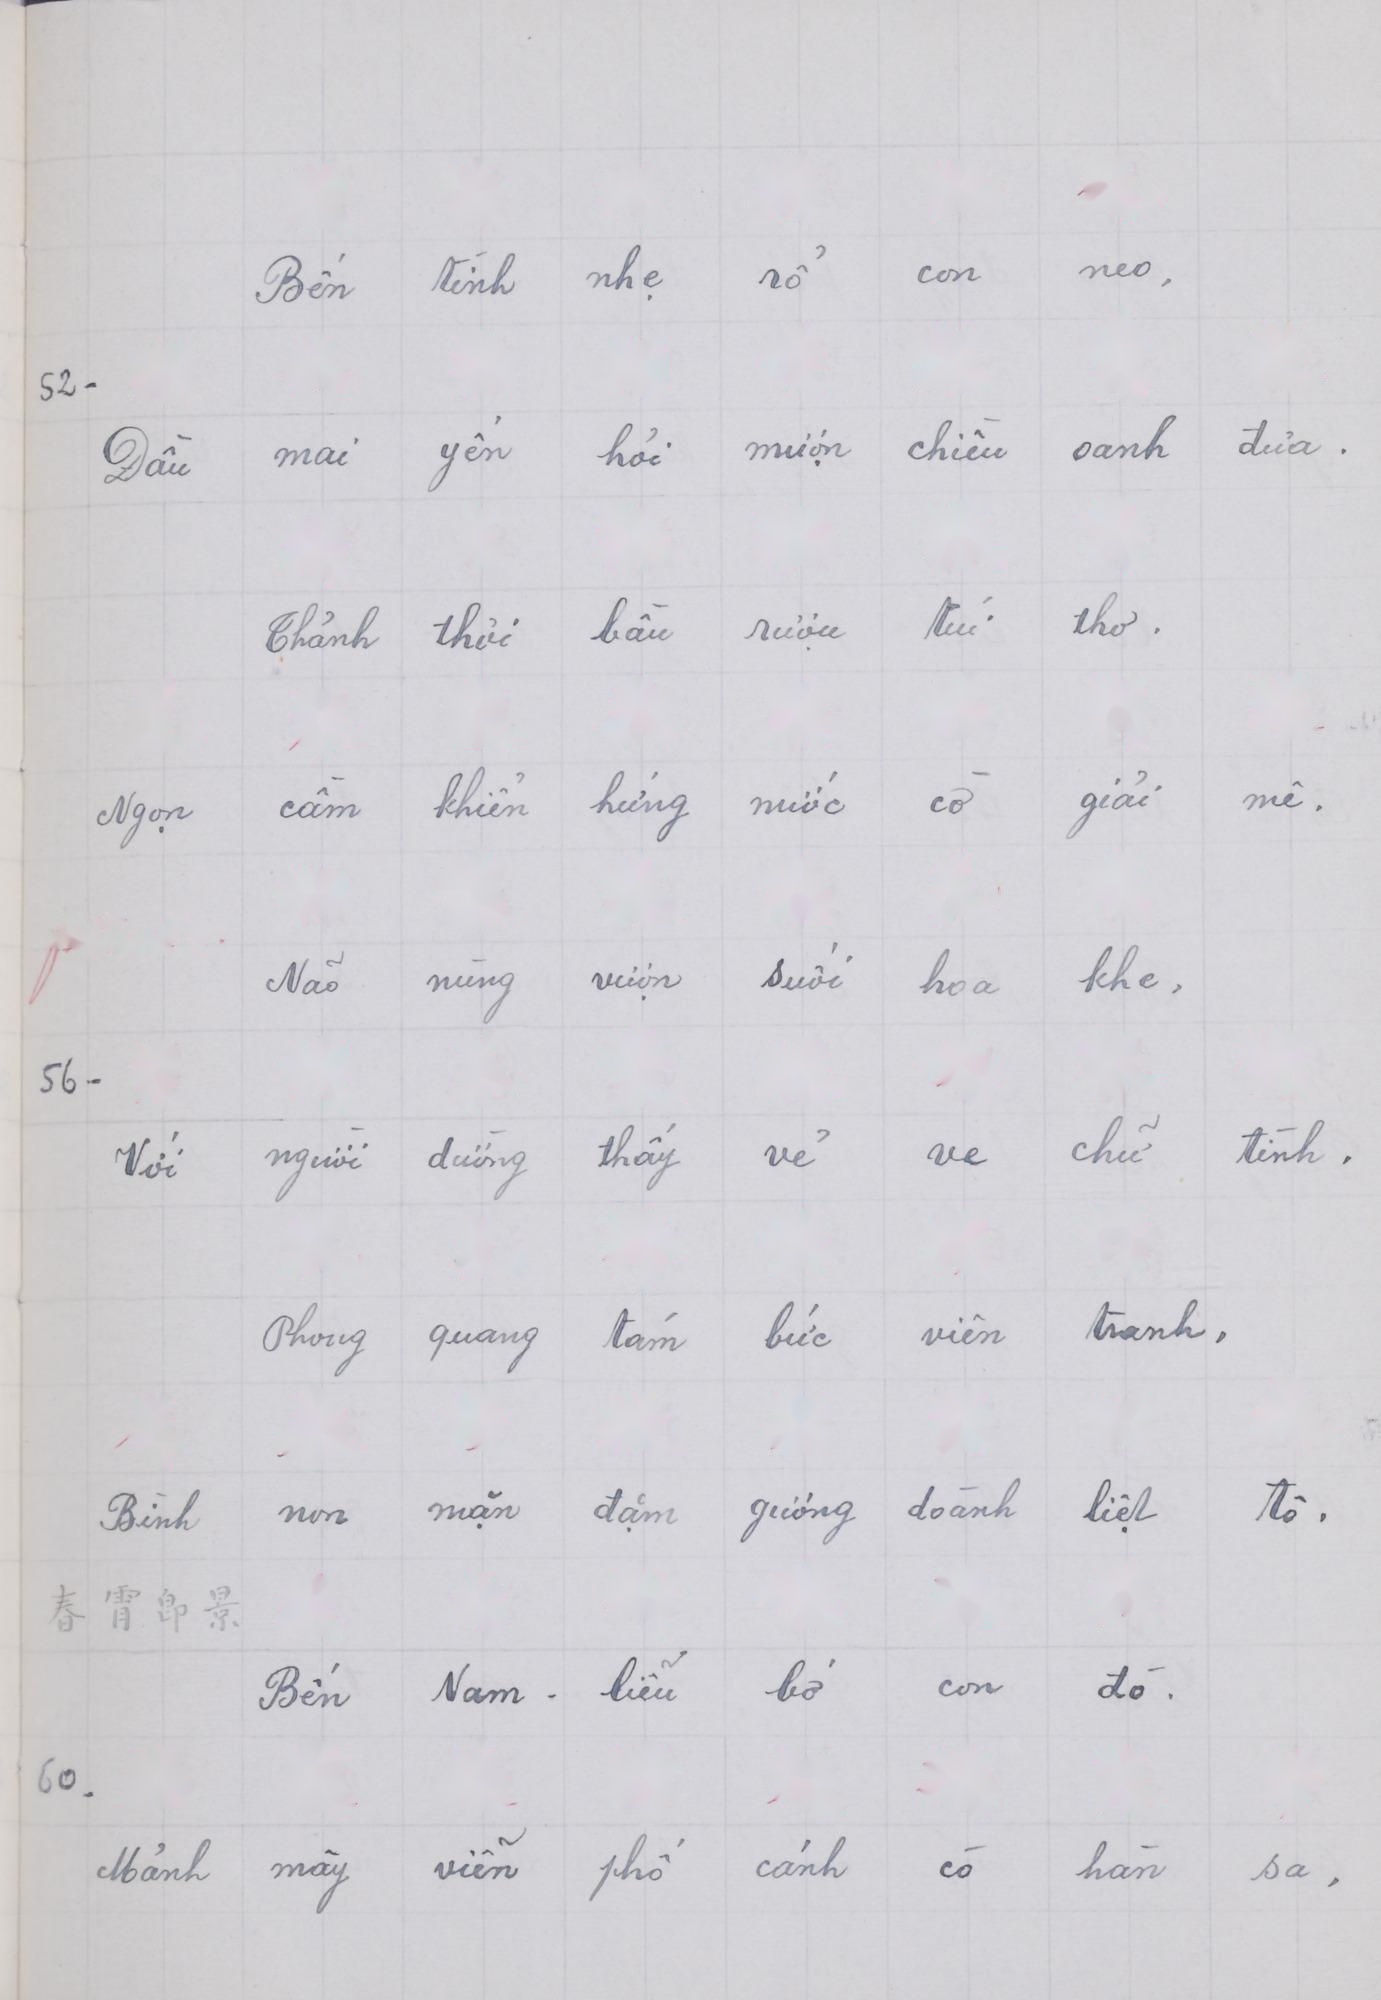 Bến tình nhẹ rổ con neo,
52-
Dầu mai yến hỏi mượn chiều oanh đưa.
Thảnh thơi bầu rượu túi thơ.
Ngọn cầm khiển hứng nước cờ giải mê.
Não nùng vượn suối hoa khe,
56-
Với người dường thấy vẻ ve chữ tình.
Phong quang tám bức viên tranh,
Bình non mặn đậm gương doành liệt tô.
春霄即景
Bến Nam - liễu bó con đò.
60.
Mảnh mây viễn phố cánh cò hàn sa,